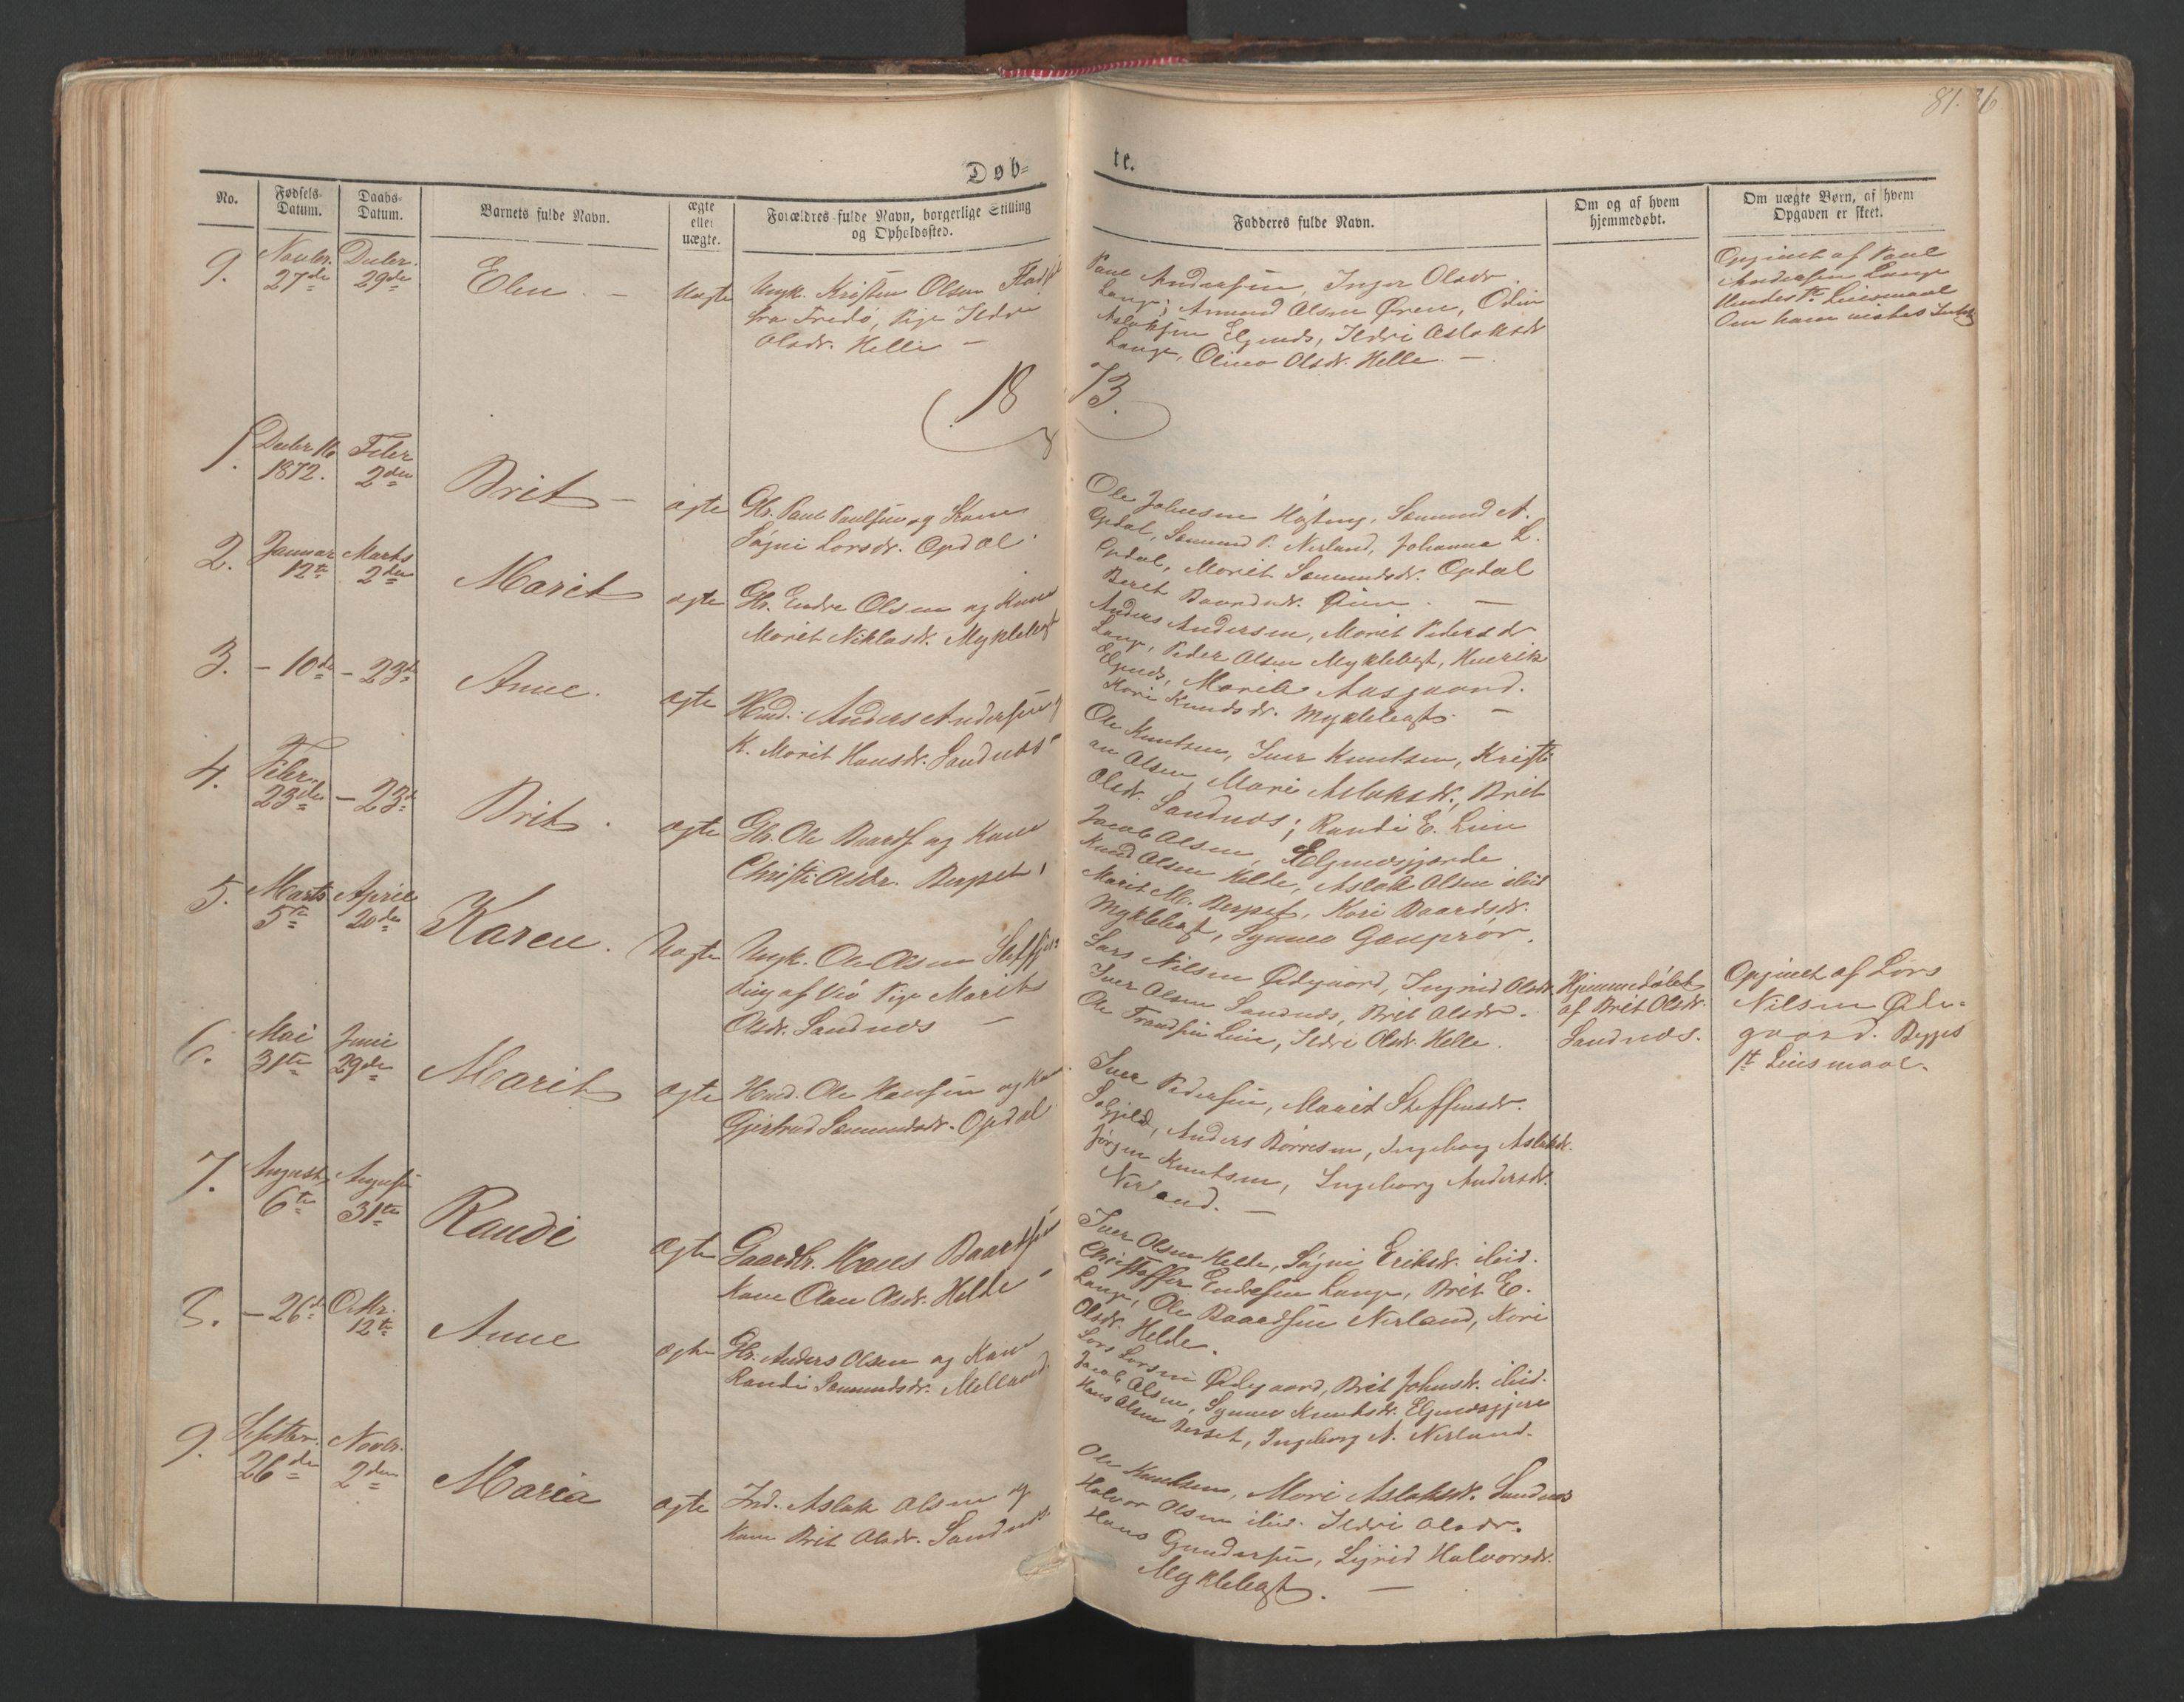 81.
Døb=
te.
No.
Fødsels-
Datum.
Daabs-
Datum.
Barnets fulde Navn.
ægte
eller
uægte.
Forældres fulde Navn, borgerlige Stilling
og Opholdssted.
Fadderes fulde Navn.
Om og af hvem
hjemmedøbt.
Om uægte Børn, af hvem
Opgaven er skeet.
9.
Novbr.
27de
Decbr.
29de
Elen. -
Uægte
Ungk. Kristen Olsen
fra Fredø, Pige Ildri
Olsdr. Helle -
Paul Andersen, Inger Olsdr.
Lange, Amund Olsen Øren, Odin
Aslaksen Elgenæs, Ildri Aslaksdr
Lange, Olina Olsdr. Helle. -
Opgivet af Paul
Andersen Lange
Hendes 1te Leiermaal
Om ham vides Intet
18 73.
1.
Decbr 16
1872.
Febr
2den
Brit -
ægte
Gbr. Paul Paulsen og Kone
Søgni Larsdr. Opdøl.
Ole Johnsen, Sæmund A.
Opdøl, Sæmund P. Nerland, Johanna L.
Opdøl, Marit Sæmundsdr. Opdøl
Beret Baardsdr. Øien. -
2.
Januar
12te
Marts
2den
Marit
ægte
Gbr. Endre Olsen og Kone
Marit Niklasdr. Myklebost
Anders Andersen, Marit Pedersdr
Lange, Peder Olsen Myklebost, Henrik
Elgenæs, Marit Aasgaard.
Kari Knudsdr. Myklebost. -
3.
- 10de
- 23de
Anne.
ægte
Hmd. Anders Andersen og
K. Marit Hansdr. Sandnæs
Ole Knutsen, Iver Knutsen, Kristi
an Olsen, Mari Aslaksdr., Brit
Olsdr. Sandnæs; Randi E. Lien
4.
Febr.
23de
- 23de
Brit.
ægte
Gbr. Ole Baards. og Kone
Christi Olsdr. Bergset,
Jacob Olsen, Elgenæsgjerde
Knud Olsen Helde, Aslak Olsen ibid
Marit M. Bergset, Kari Baardsdr.
Myklebost, Synnev Gauprør.
5.
Marts
5te
April
20de
Karen.
Uægte
Ungk. Ole Olsen
af Veø Pige Marit
Olsdr. Sandnæs -
Lars Nilsen Ødegaard, Ingrid Olsdr.
Iver Olsen Sandnæs, Brit Olsdr.
Ole Trondsen Lien, Ildri Olsdr. Helle.
Hjemmedøbt
af Brit Olsdr.
Sandnæs.
Opgivet af Lars
Nilsen Øde-
gaard. Begges
1te Leiermaal.
6.
Mai
31te
Juni
29de
Marit
ægte
Hmd. Ole Hansen og Kone
Gjertrud Sæmundsdr. Opdøl.
Iver Pedersen, Marit Steffensdr.
Solgjeld, Anders Børresen, Ingeborg Aslaksdr.
Jørgen Knutsen, Ingeborg Andersdr.
Nerland. -
7.
August
6te
August
31te
Randi
ægte
Gaardbr. Hans Baardsen
Kone Ane Olsdr. Helde
Iver Olsen Helde, Søgni Eriksdr. ibid.
Christoffer Endresen Lange, Brit E.
Lange, Ole Baardsen Nerland, Kari
Olsdr. Helde.
8.
- 26de
Octbr.
12te
Anne
ægte
Gbr. Anders Olsen og Kone
Randi Sæmundsdr. Melland.
Lars Larsen Ødegaard, Brit Johnsdr. ibid.
Jacob Olsen, Synnev Knutsdr. Elgenæsgjere
Hans Olsen Berset, Ingeborg A. Nerland.
9.
Septbr.
26de
Novbr.
2den
Maria
ægte
Ind. Aslak Olsen og
Kone Brit Olsdr. Sandnæs.
Ole Knutsen, Mari Aslaksdr. Sandnæs
Halvor Olsen ibid. Ildri Olsdr.
Hans Gundersen, Sigrid Halvorsdr.
Myklebost. -